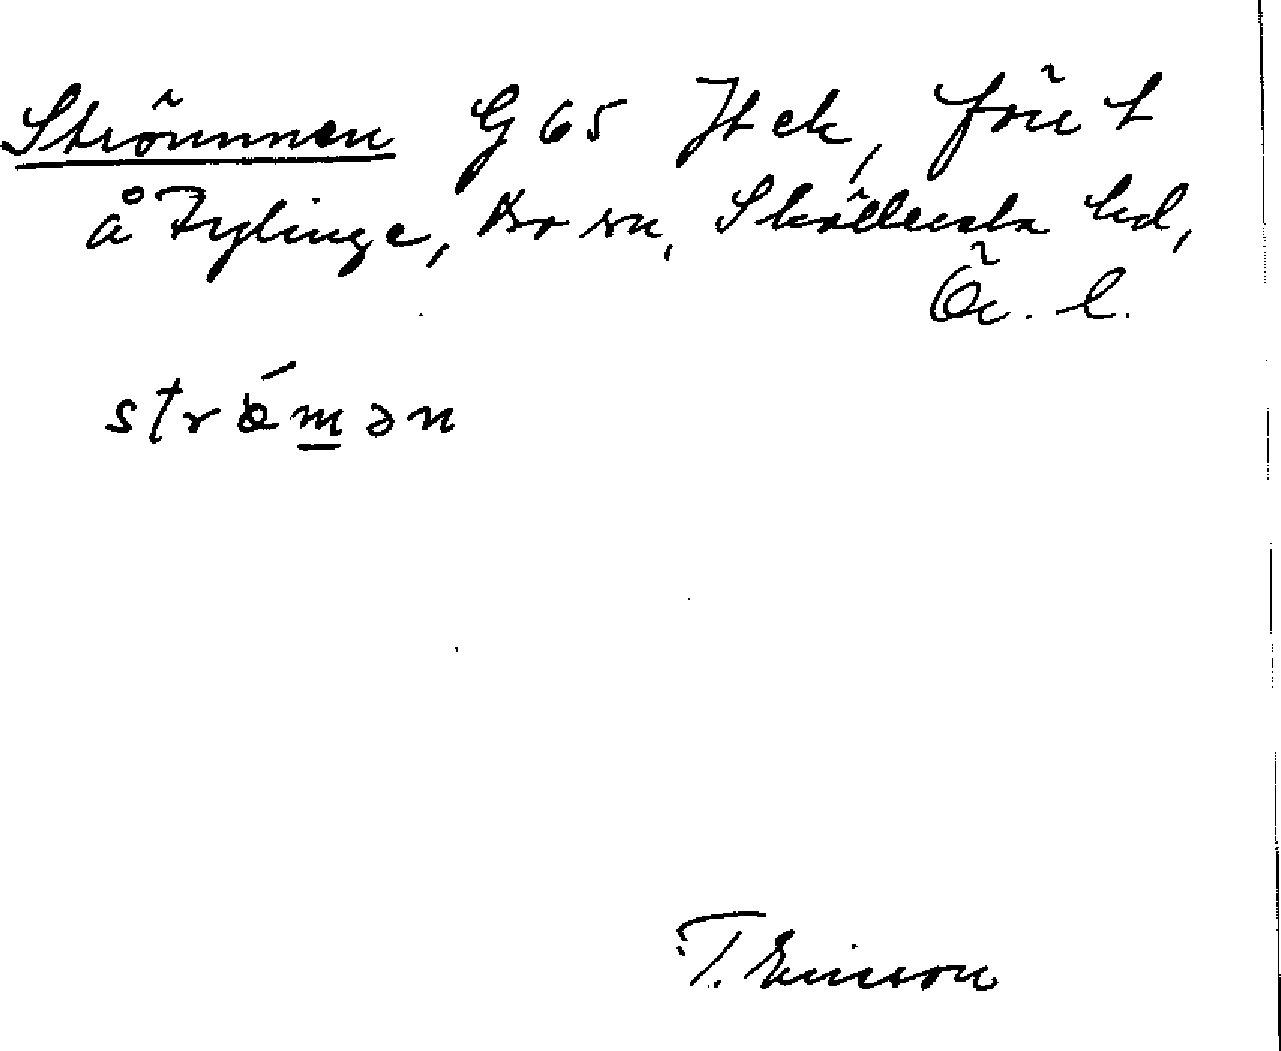 Strömmen G 65 Jt ek, förut
å Tylinge, Bo sn, Sköllersta hd,
Ör. l.
strǿmən
T. Ericson